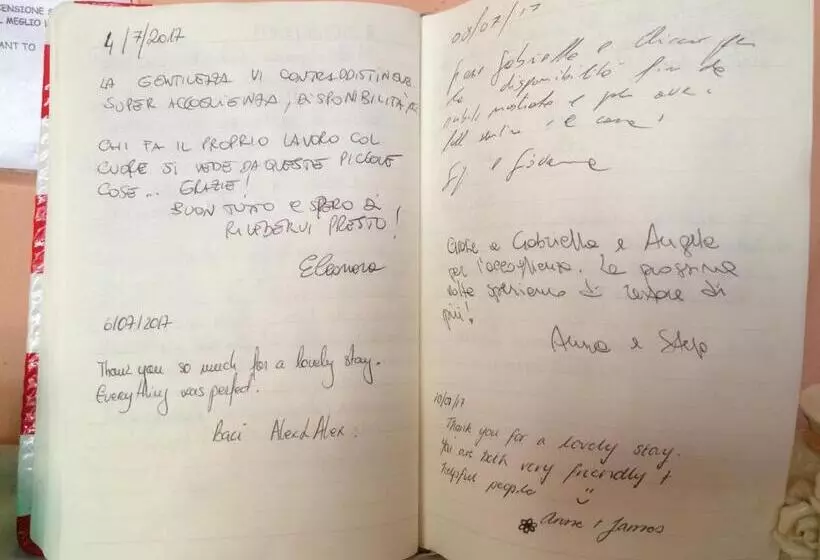 ENSIONE
MEGLIO
ANT TO
4/7/2017
LA GENTILEZZA VI CONTRADDISTINGUE
SUPER ACCOGLIENZA, DISPONIBILITÀ
CHI FA IL PROPRIO LAVORO COL
CUORE SI VEDE DA QUESTE PICCOLE
COSE... GRAZIE!
BUON TUTTO E SPERO DI
RIVEDERVI PRESTO!
Eleonora
6/07/2017
Thank you so much for a lovely stay.
Everything was perfect.
Baci Alex & Alex.
08/07/17
Gabriella e
la disponibilità fin da
subito e
e
Grazie a Gabriella e Angelo
per l'accoglienza. La prossima
volta speriamo di restare di
più!
Anna e Step
10/07/17
Thank you for a lovely stay.
You are both very friendly +
helpful people
Anne + James